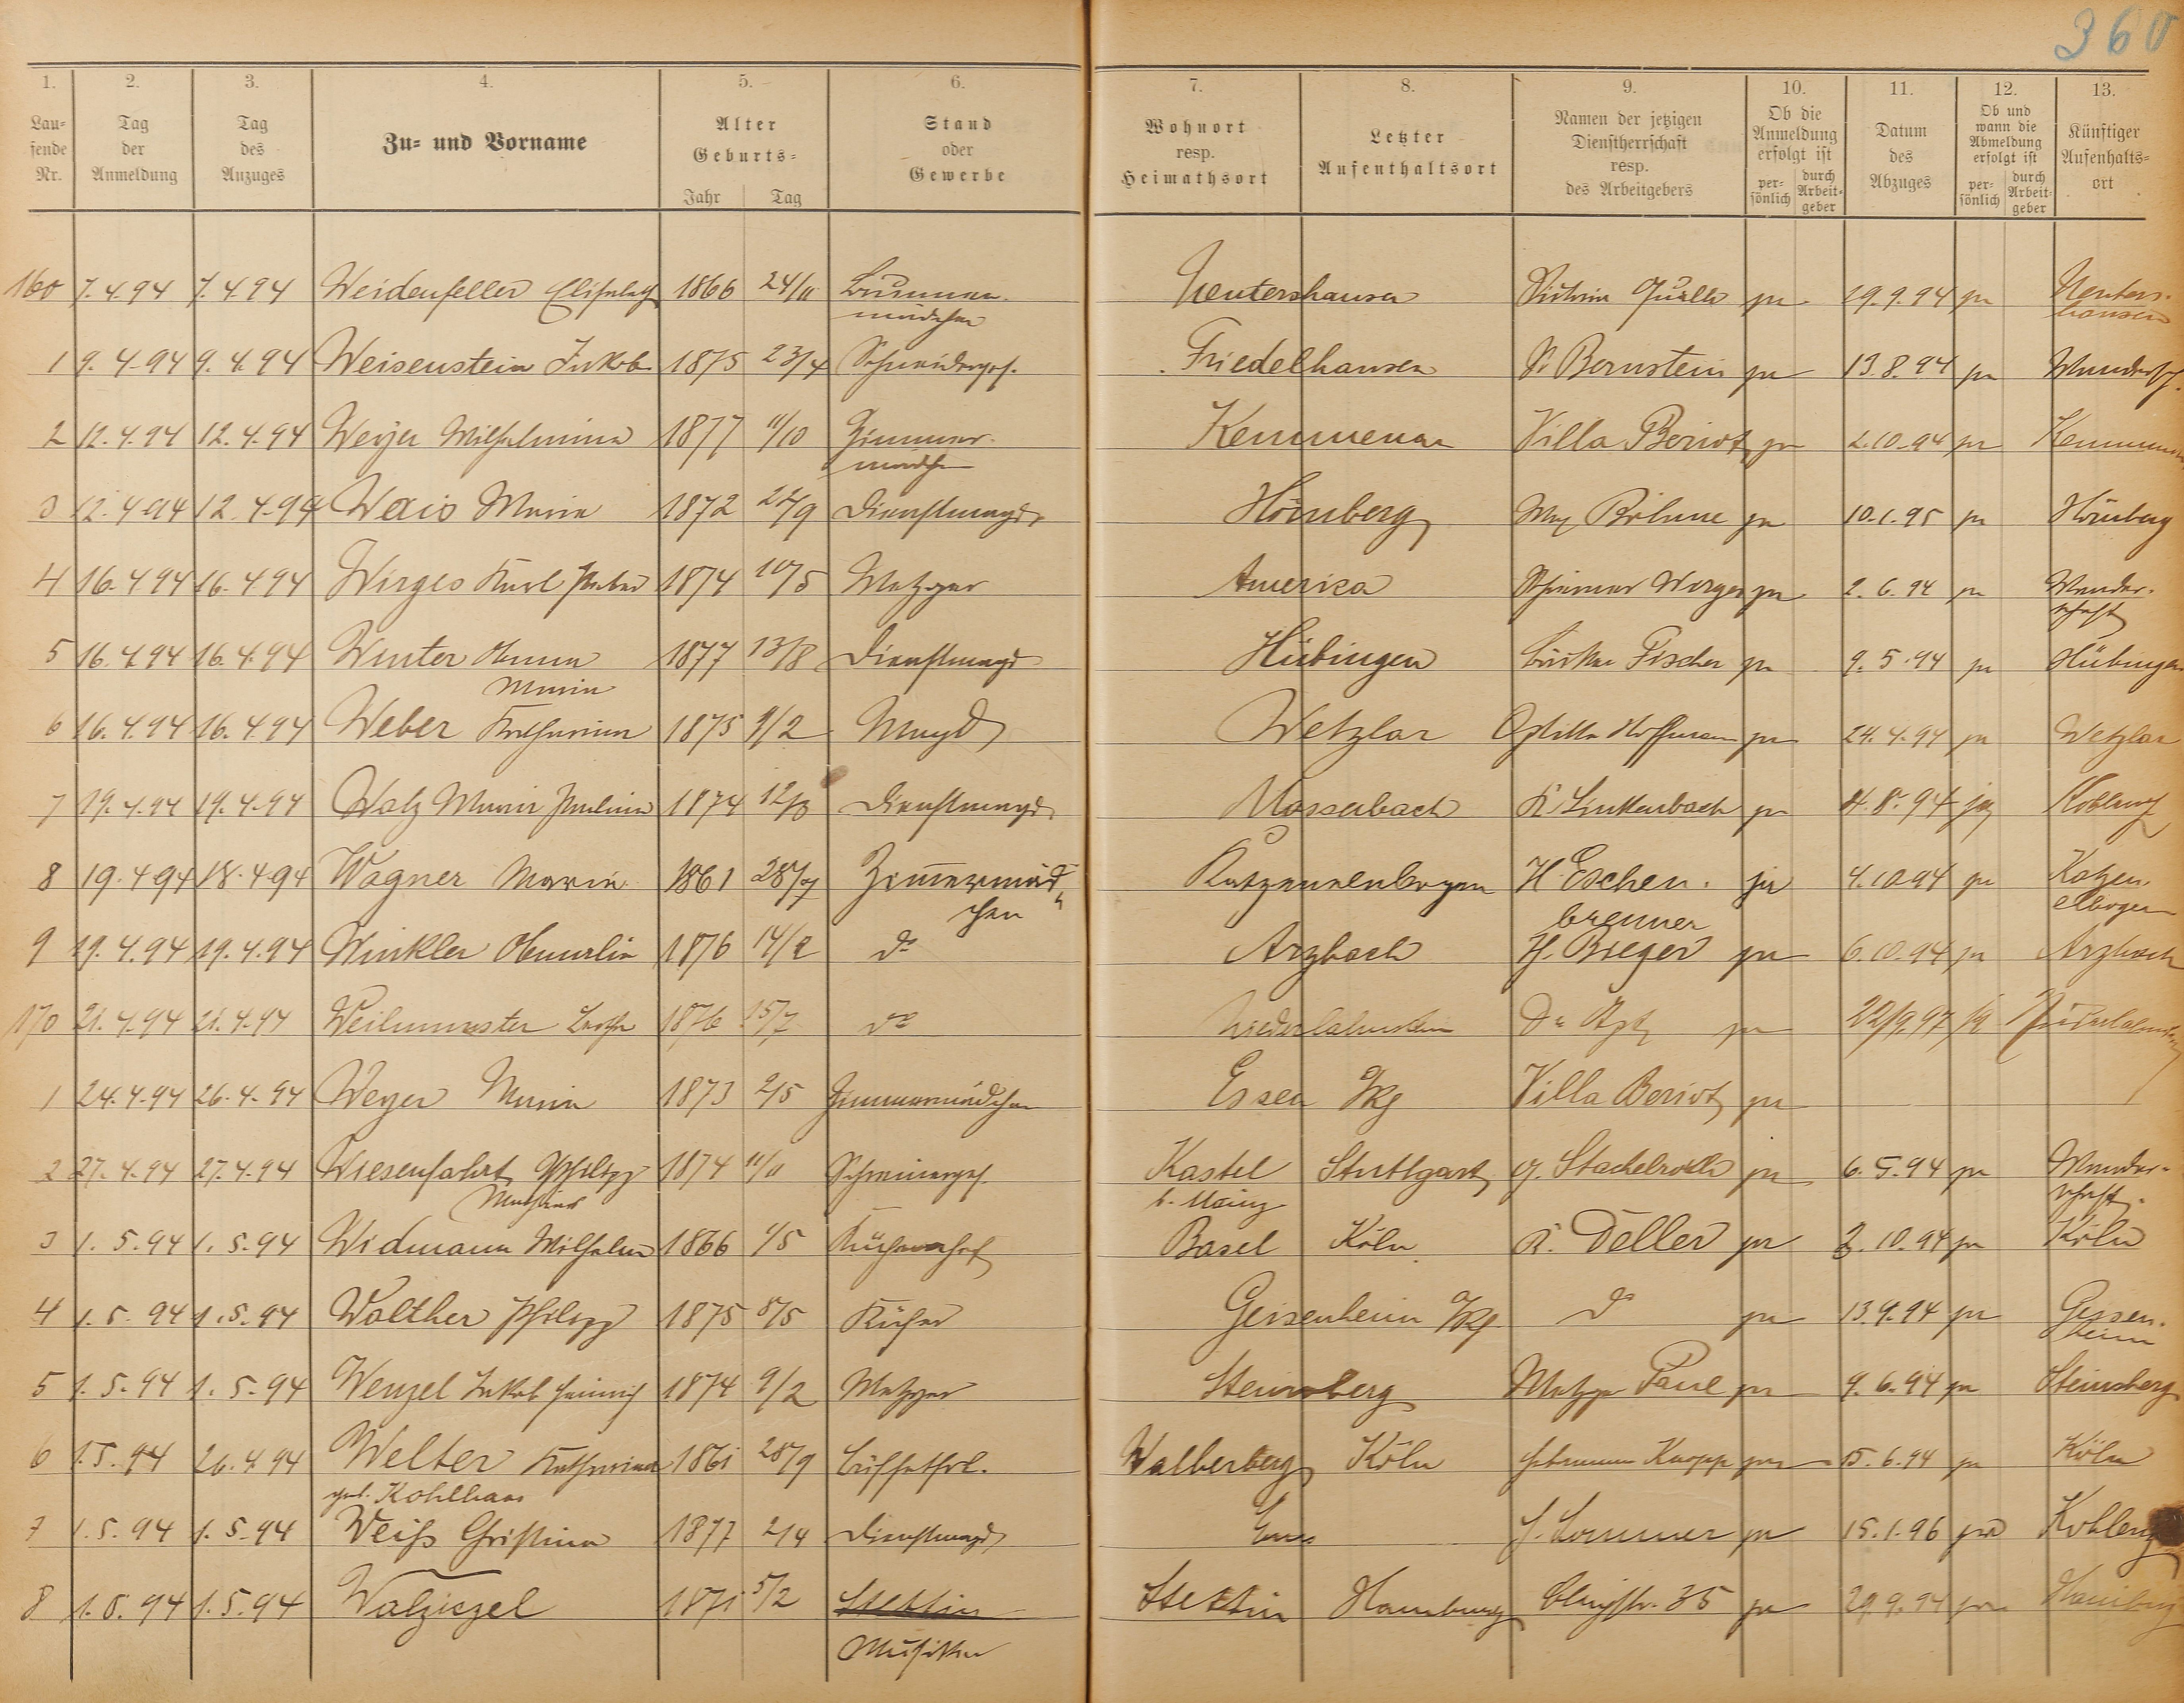 360
1. 2. 3. 4. 5. 6. 7. 8. 9. 10. 11. 12. 13.
Lau-
fende
Nr.
Tag
der
Anmeldung
Tag
des
Anzuges
Zu- und Vorname
Alter
Geburts-
Jahr Tag
Stand
oder
Gewerbe
Wohnort
resp.
Heimathsort
Letzter
Aufenthaltsort
Namen der jetzigen
Dienstherrschaft
resp.
des Arbeitgebers
Ob die
Anmeldung
erfolgt ist
per-
sönlich
durch
Arbeit-
geber
Datum
des
Abzuges
Ob und
wann die
Abmeldung
erfolgt ist
per-
sönlich
durch
Arbeit-
geber
Künftiger
Aufenhalts-
ort
160 7.4.94 7.4.94 Weidenfeller Elisabeth 1866 24/11 Brunnen- Nentershausen 29.9.94 Nenters-
mädchen hausen
1 9.4.94 9.4.94 Weisenstein Jakob 1875 23/4 Schneiderges. Friedelhausen Bernstein 13.8.94
2 12.4.94 12.4.94 Weyer Wilhelmina 1877 11/10 Zimmer- Kemmenau Villa Beriot 2.10.94 Kemmenau
mädchen
3 12.4.94 12.4.94 Wais Maria 1872 Dienstmagd Hömberg 10.1.95 Hömberg
4 16.4.94 16.4.94 Wirges Karl 1874 10/5 Metzger America Wirges 2.6.94 Wander-
schaft
5 16.4.94 16.4.94 Winter Anna 1877 13/8 Dienstmagd Hübingen Fischer 9.5.94 Hübingen
Maria
6 16.4.94 16.4.94 Weber Katharina 1875 9/2 Magd Wetzlar Hoffmann 24.4.94 Wetzlar
7 19.4.94 19.4.94 Walz Maria Paulina 1874 Dienstmagd Linkenbach 8.94 Koblenz
8 19.4.94 18.4.94 Wagner Maria 1861 28/7 Zimmermäd- Katzenelnbogen H. Eschen- 4.10.94 Katzen-
chen brenner elbogen
9 19.4.94 19.4.94 Winkler Amalia 1876 14/2 do Arzbach H. Bieger 6.10.94 Arzbach
170 21.4.94 21.4.94 Weilmünster 1876 15/7 do Niederlahnstein Niederlahnstein
1 24.4.94 26.4.94 Weyer Maria 1873 2/5 Zimmermädchen Essen Villa Beriot
2 27.4.94 27.4.94 Wiesenfahrt Philipp 1874 11/11 Schreinerges. Kastel Stuttgart 6.5.94 Wander-
Mathias b. Mainz schaft.
3 1.5.94 1.5.94 Widmann Wilhelm 1866 1/5 Küchenchef Basel Köln R. Deller 10.94 Köln
4 1.5.94 1.5.94 Walther Philipp 1875 8/5 Küfer Geisenheim do 13.9.94 Geisen-
heim
5 1.5.94 1.5.94 Wenzel Jakob Heinrich 1874 9/2 Metzger Steinsberg Metzger Paul 9.6.94 Steinsberg
6 1.5.94 26.4.94 Welter Katharina 1861 28/9 Büffetfrl. Walberberg Köln Hermann Knopp 15.6.94 Köln
geb. Kohlhaas
7 1.5.94 1.5.94 Weiß Christina 1877 2/4 Dienstmagd Ems J. Sommer 15.1.96 Koblenz
8 1.5.94 1.5.94 Walziezel 1871 5/2 Stettin Stettin Hamburg 35 29.9.94 Hamburg
Musiker